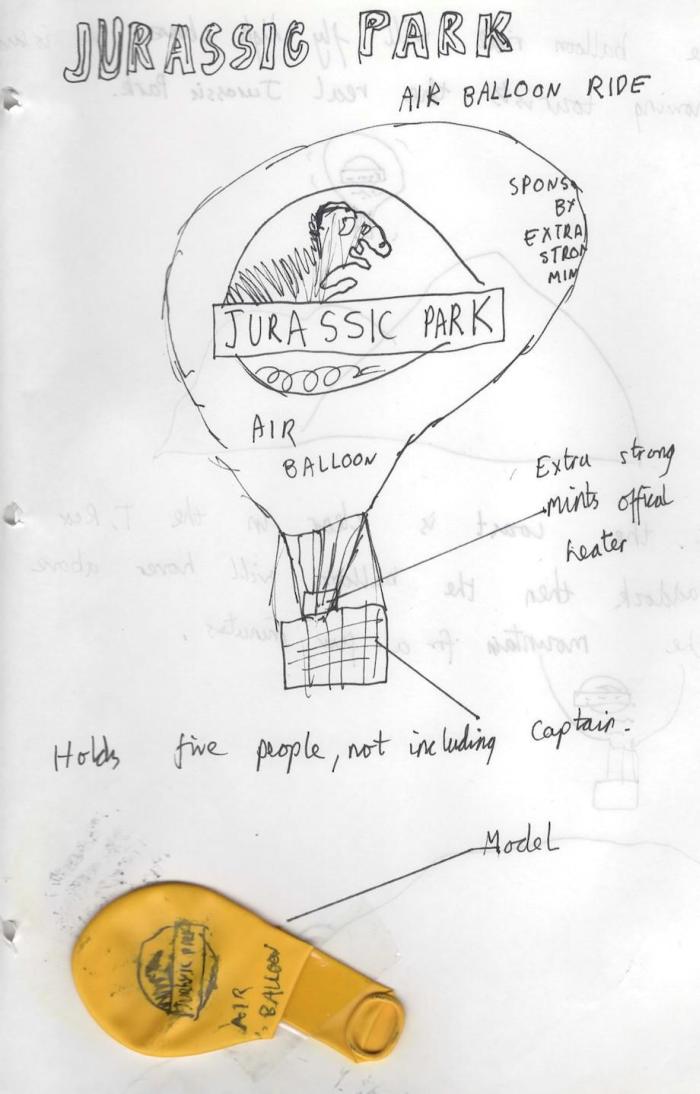 JURASSIC PARK
AIR BALLOON RIDE
SPONS
BY
EXTRA
STRON
MIN
JURASSIC PARK
AIR
BALLOON
Extra strong
mints offical
heater
Holds five people, not including captain.
Model
JURASSIC PARK
AIR
BALLOON